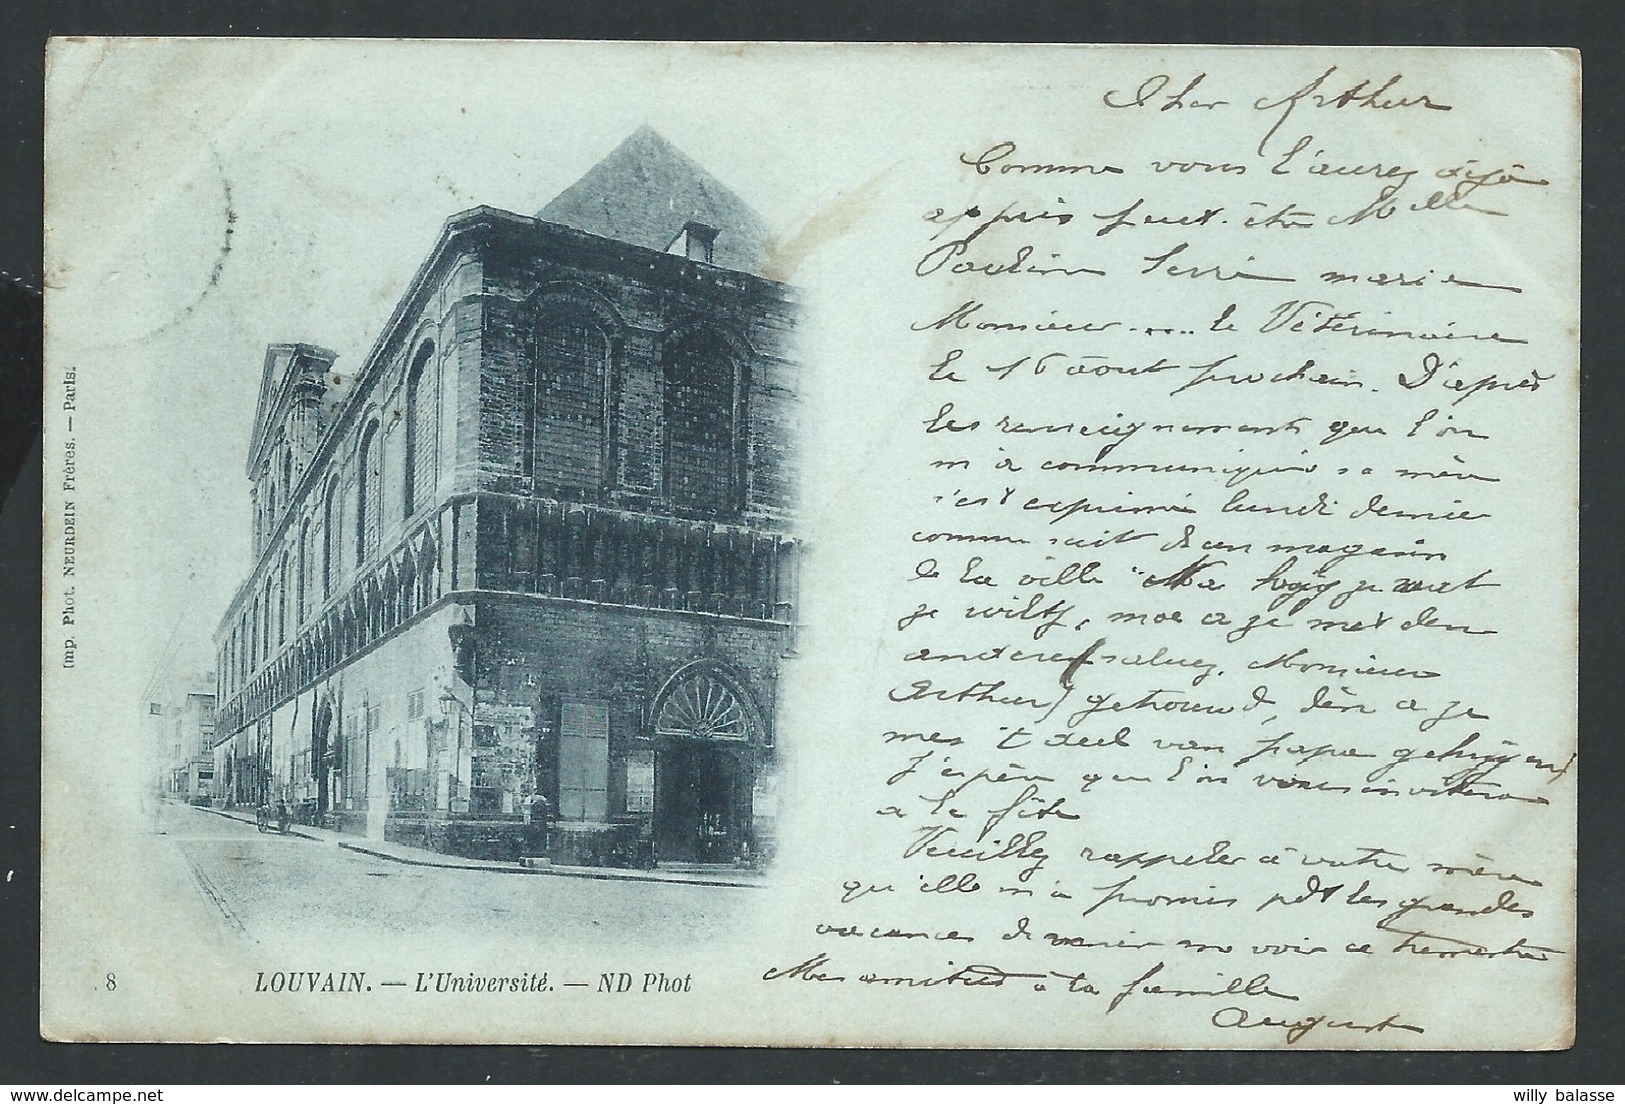 Cher Arthur
Comme vous l'aurez déjà
appris peut-être Melle
Pauline Serré marie
Monsieur ..... le Vétérinaire
le 16 août prochain. D'après
les renseignements que l'on
m'a communiqués sa mère
s'est exprimé lundi dernier
comme suit dans un magasin
de la ville "Na
je wilt, moe a je met den
anderen (saluez Monsieur
Arthur) getrouwd, dên a je
mes 't deel van papa
J'espère que l'on vous invitera
à la fête
Veuillez rappeler à votre mère
qu'elle m'a promis pdt les grandes
vacances de venir me voir ce
Mes amitiés à la famille
August
Imp. Phot. NEURDEIN Frères. — Paris.
8 LOUVAIN. — L'Université. — ND Phot
willy balasse